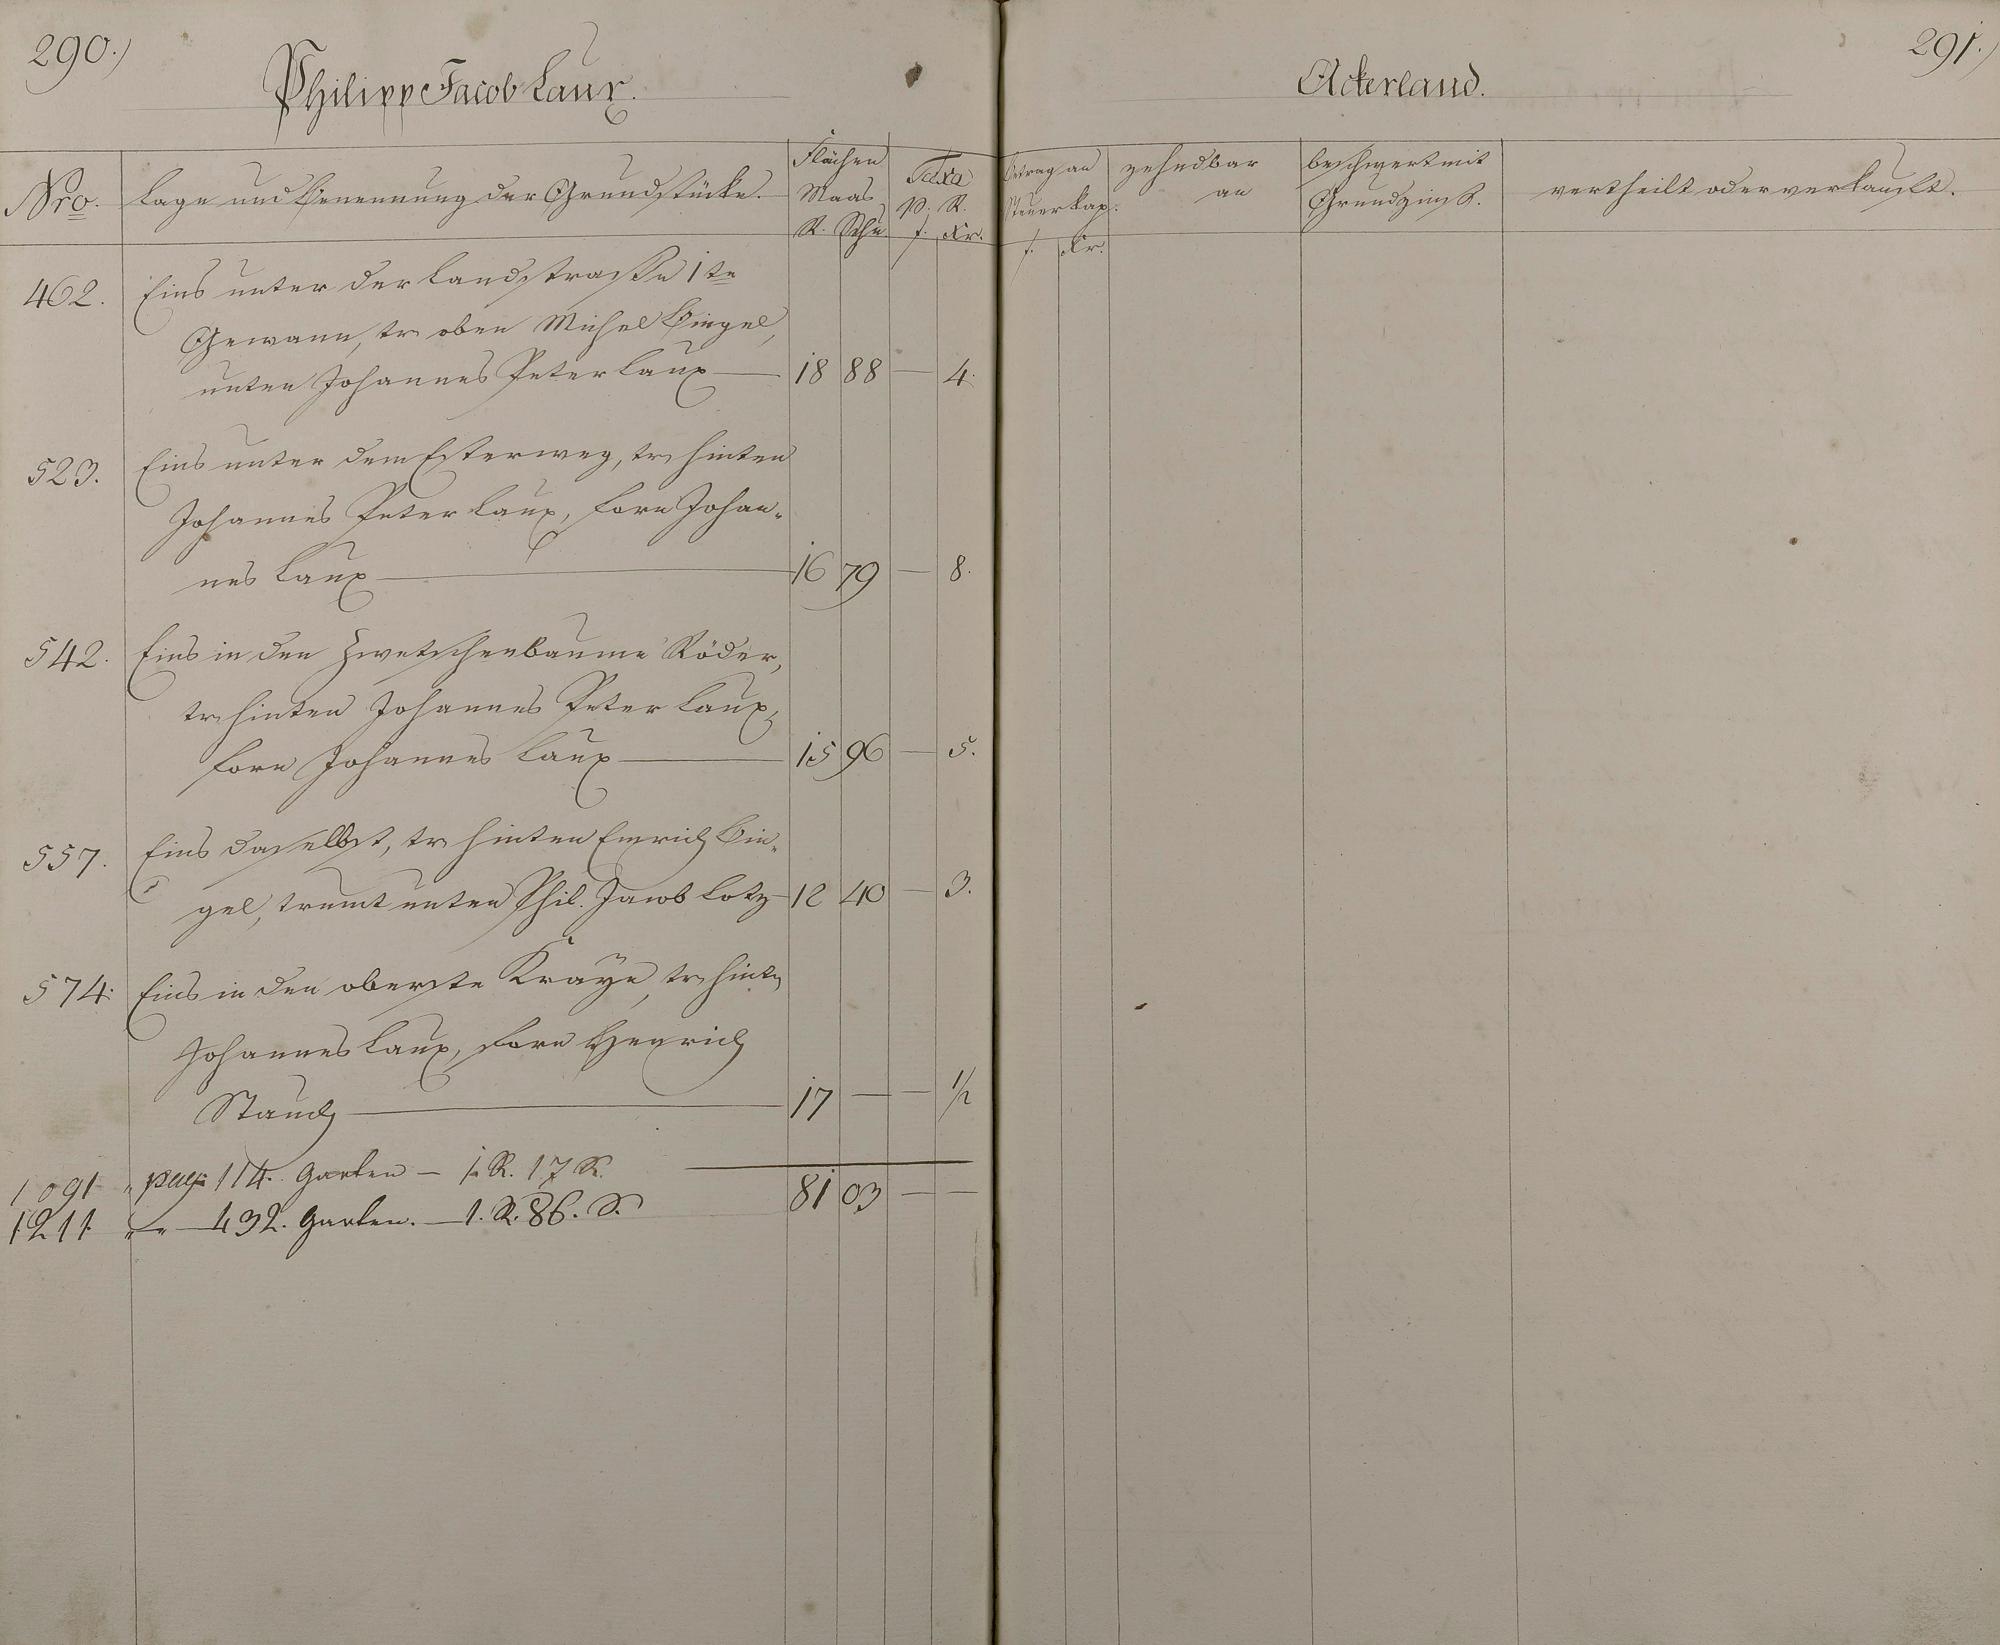 290.)
Philipp Jacob Laux.
Nro.
Lage und Benennung der Grundstücke.
Flächen
Maas
R. Schu
Taxa
p. R.
f. Xr.
462.
Eins unter der Landstraße 1te
Gewann, tr. oben Michel Bingel,
unten Johannes Peter Laux — 18 88 — 4.
523.
Eins unter dem Esterweg, tr. hinten
Johannes Peter Laux, forn Johan-
nes Laux — 16 79 — 8.
542.
Eins in den Zwetschenbaume Röder,
tr. hinten Johannes Peter Laux,
forn Johannes Laux — 15 96 — 5.
557.
Eins daselbst, tr. hinten Emrich Bin-
gel, trumt unten Phil. Jacob Lotz — 12 40 — 3.
574.
Eins in den oberste Kraÿe, tr. hinten
Johannes Laux, forn Henrich
Stauch — 17 — — 1/2
1091 " pag. 114. Garten — 1. R. 17 S.
81 03 — —
1211. " " — 432. Garten. — 1. R. 86. S.
291.)
Ackerland.
Betrag an
Steuerkap.
f. Xr.
zehndbar
an
beschwert mit
Grundzinß.
vertheilt oder verkauft.